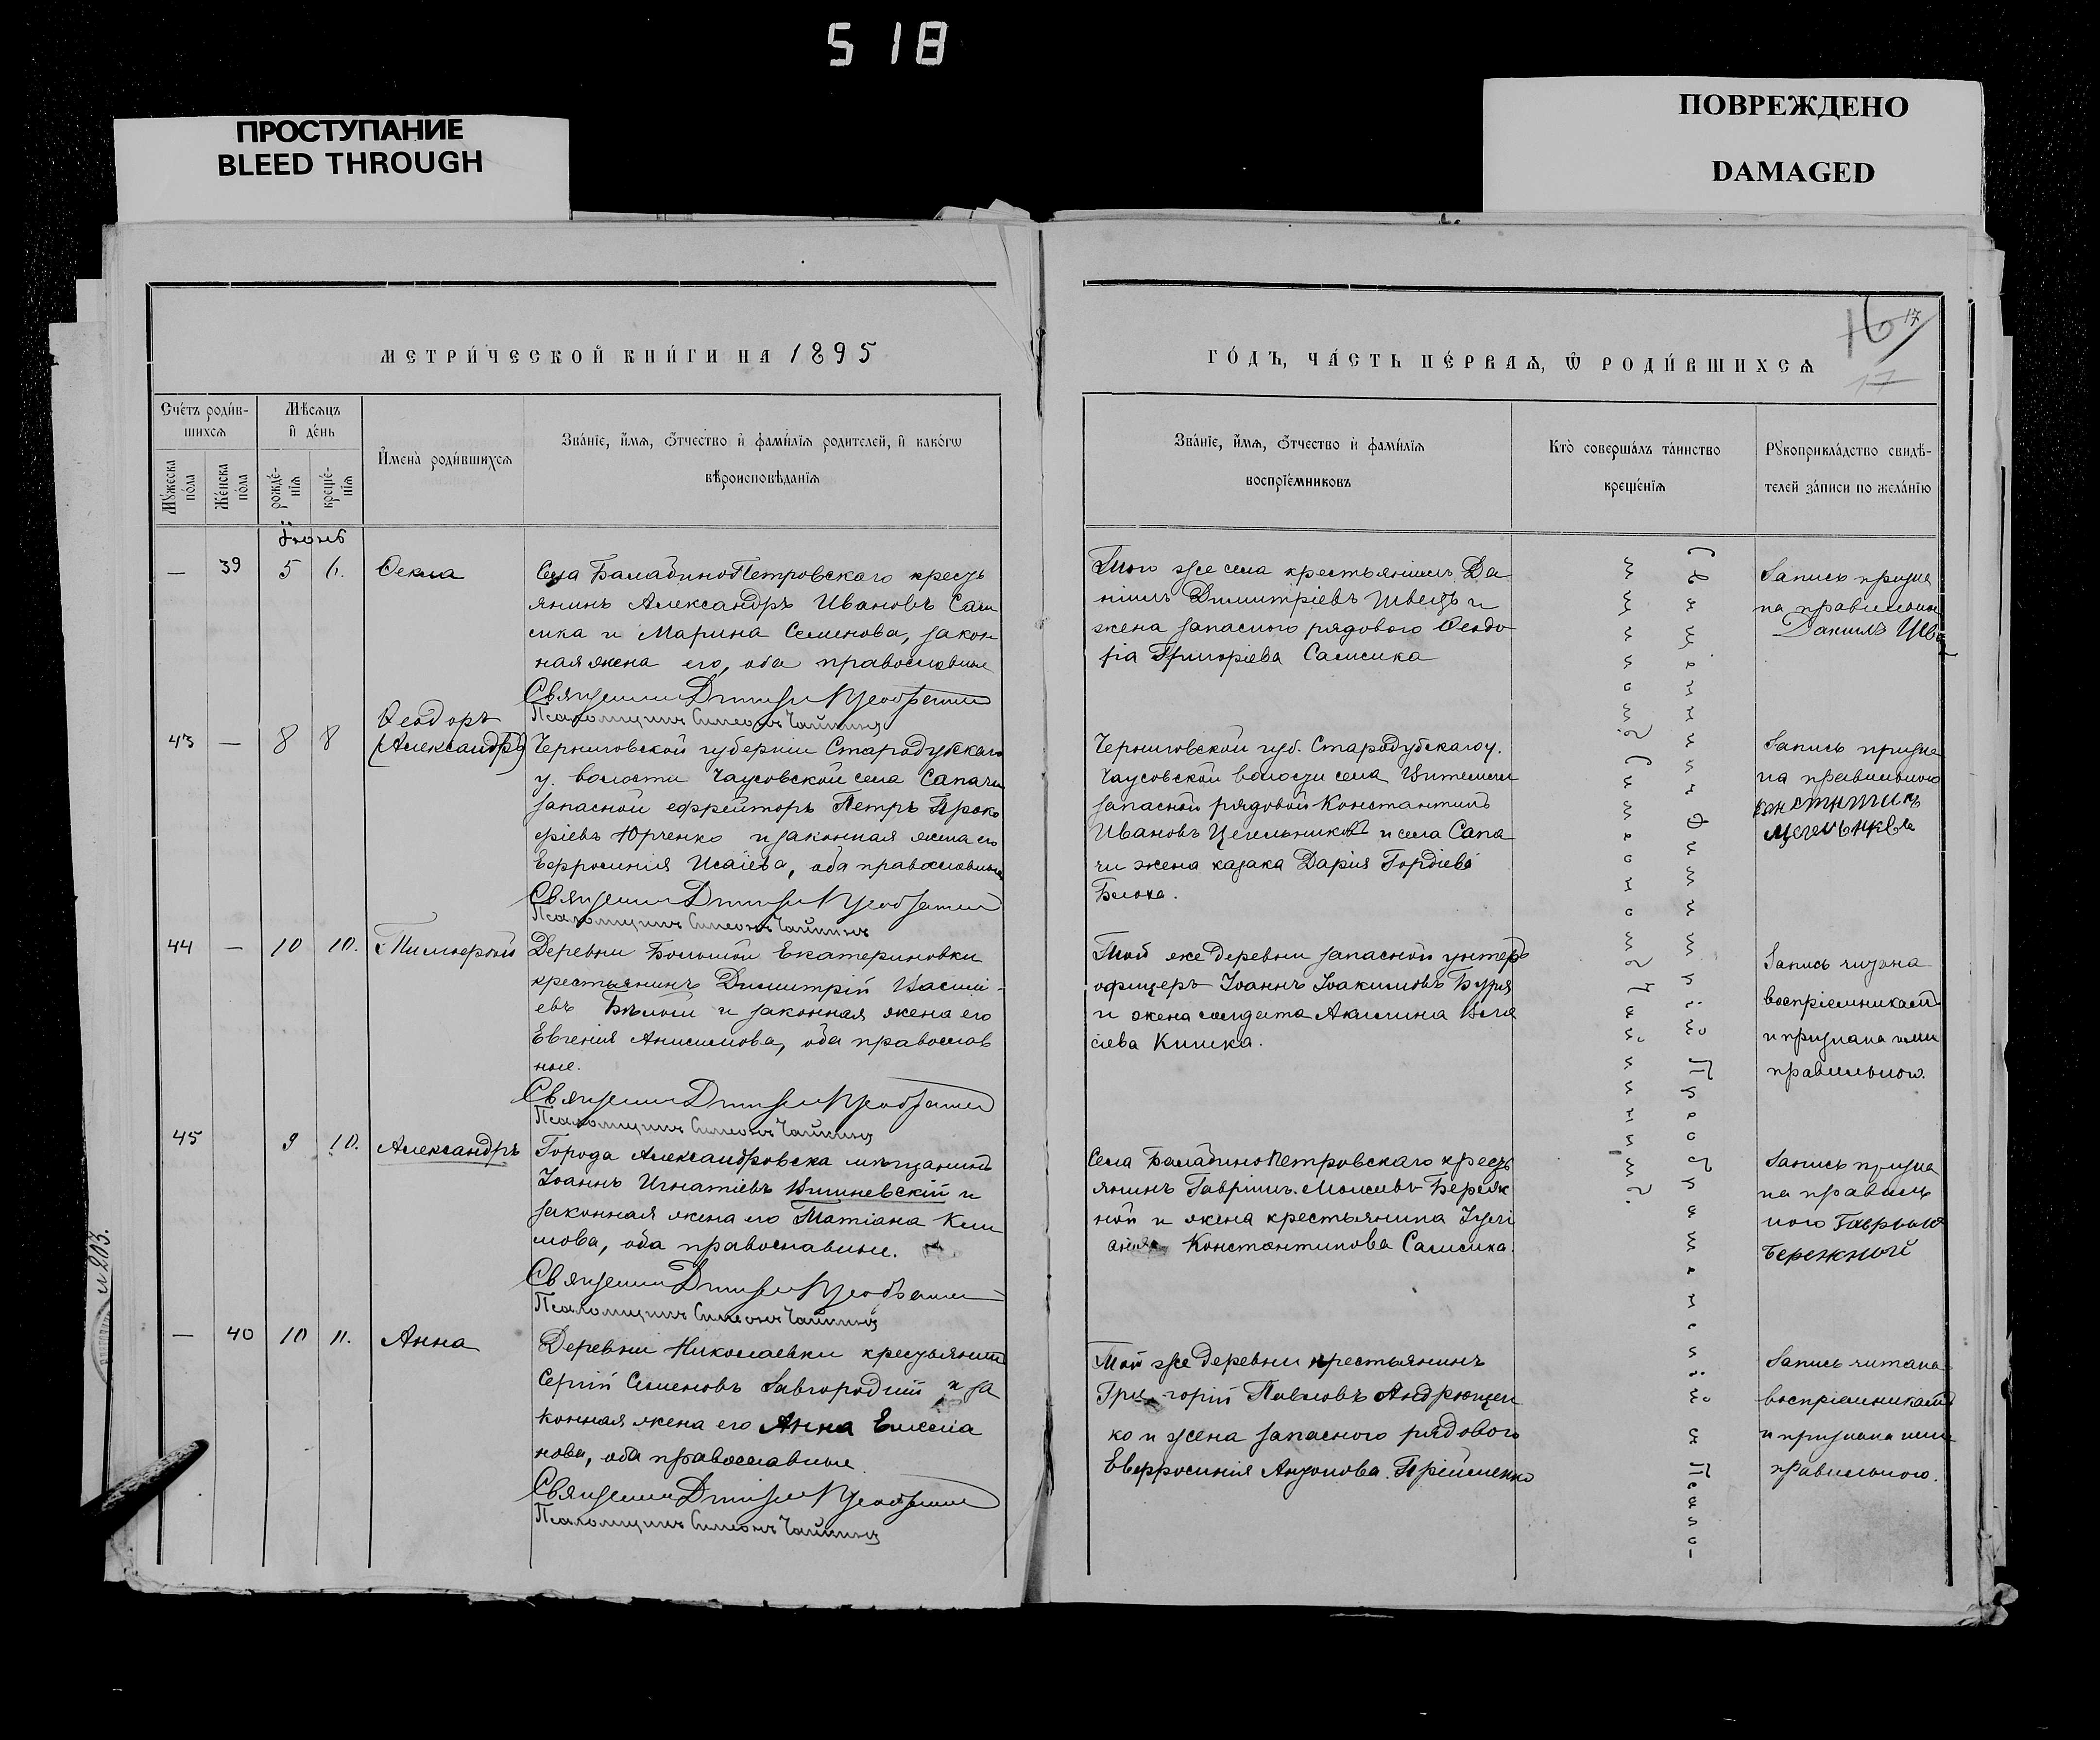 518
ПРОСТУПАНИЕ
BLEED THROUGH
ПОВРЕЖДЕНО
DAMAGED
МЕТРИ́ЧЕСКОЙ КНИ́ГИ НА 1895
ГО́ДЪ, ЧА́СТЬ ПЕ́РВАѦ, Ѿ РОДИ́ВШИХСѦ
16 17
17
Сче́тъ роди́в-
шихсѧ
Мѣ́сѧцъ
и҆ де́нь
Мꙋ́жеска
по́ла
Же́нска
по́ла
рожде́-
нїѧ
креще́-
нїѧ
И҆мена̀ роди́вшихсѧ
Зва́нїе, и҆́мѧ, ѻ҆́тчество и҆ фами́лїѧ родителей, и҆ како́гѡ
вѣроисповѣ́данїѧ
Зва́нїе, и҆́мѧ, ѻ҆́тчество и҆ фами́лїѧ
воспрїе́мниковъ
Кто̀ соверша́лъ та́инство
креще́нїѧ
Рꙋкоприкла́дство свидѣ́-
телей за́писи по жела́нїю
Іюнь
— 39 5 6. Ѳекла
Села БалабиноПетровскаго кресть
янинъ Александръ Ивановъ Сам
сика и Марина Семенова, закон
ная жена его, оба православные
Священникъ Димитрій
Псаломщикъ Симеонъ
Того же села крестьянинъ Да
ніилъ Димитріевъ Швецъ и
жена запаснаго рядового Ѳеодо
сія Григоріева Самсика
Запись призна
на правильною
Данилъ Шве
43 — 8 8 Ѳеодоръ
(Александръ)
Черниговской губерніи Стародубскаго
у. волости Чаусовской села Сапачи
запасной ефрейторъ Петръ Проко
фіевъ Юрченко и законная жена его
Ефросинія Исаіева, оба православные
Священникъ Димитрій
Псаломщикъ Симеонъ
Черниговской губ. Стародубскаго у.
Чаусовской волости села
запасной рядовой Константинъ
Ивановъ Цегельниковъ и села Сапа
чи жена казака Дарія Гордіева
Блоха.
Запись призна
на правильною
Цегельниквъ
44 — 10 10. Тимоѳей
Деревни Большой Екатериновки
крестьянинъ Димитрій Васильі-
евъ Бѣлый и законная жена его
Евгенія Анисимова, оба православ
ные.
Священникъ Димитрій
Псаломщикъ Симеонъ
Той же деревни запасной унтеръ
офицеръ Іоаннъ Іоакимовъ Буря
и жена солдата Акилина Вла
сіева Кишка.
Запись читана
воспріемникамъ
и признана ими
правильною.
45 9 10. Александръ
Города Александровска мѣщанинъ
Іоаннъ Игнатіевъ Вишневскій и
законная жена его Татіана Кли
мова, оба православные.
Священникъ Димитрій
Псаломщикъ Симеонъ
Села БалабиноПетровскаго кресть
янинъ Гавріилъ Моисеевъ Береж
ной и жена крестьянина Іулі
анія Константинова Самсика.
Запись призна
на правиль
ною Гаврыло
Бережной
— 40 10 11. Анна
Деревни Николаевки крестьянинъ
Сергій Семеновъ Завгородній и за
конная жена его Анна Емелiа
нова, оба православные
Священникъ Димитрій
Псаломщикъ Симеонъ
Той же деревни крестьянинъ
Григорій Павловъ Андрющен
ко и жена запасного рядового
Евфросинія Антонова Прійменко
Запись читана
воспріемникамъ
и признана ими
правильною.